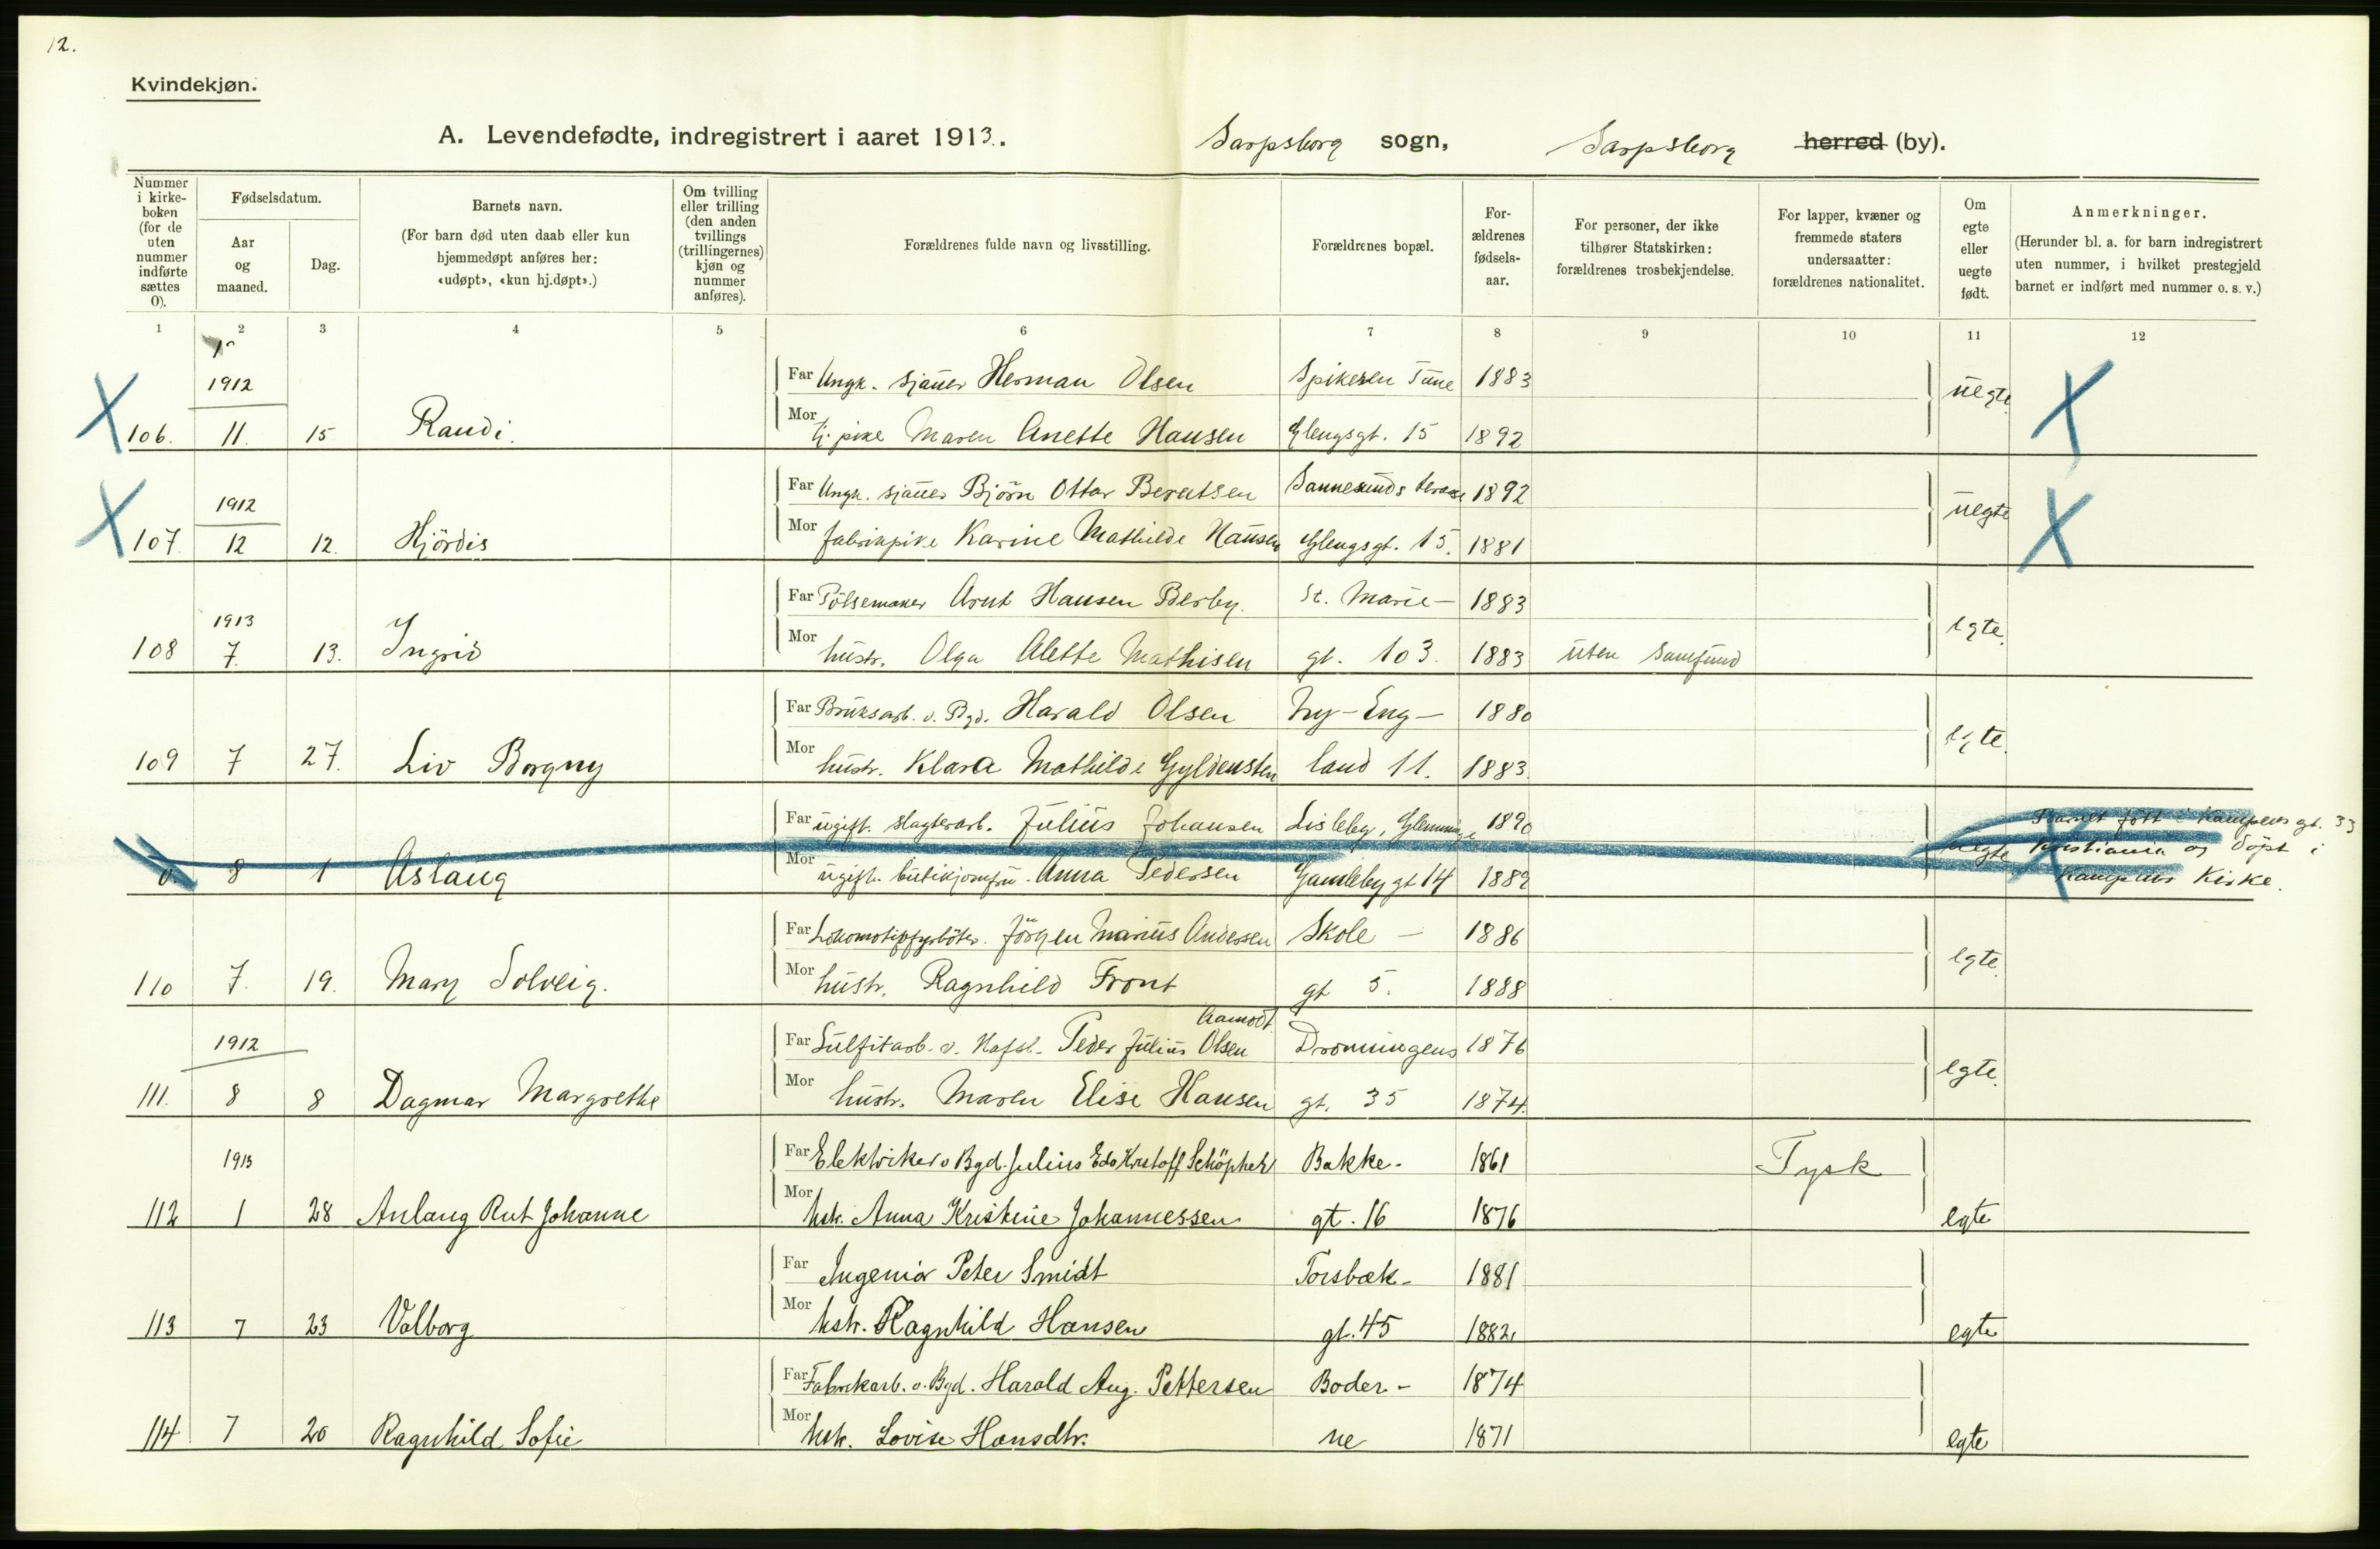 12.
Kvindekjøn.
A. Levendefødte, indregistrert i aaret 1913. Sarpsborg sogn, Sarpsborg herred (by).
Nummer i kirke- boken (for de uten nummer indførte sættes 0).
Fødselsdatum.
Aar og maaned.
Dag.
Barnets navn.
(For barn død uten daab eller kun hjemmedøpt anføres her: «udøpt», «kun hj.døpt».)
Om tvilling eller trilling (den anden tvillings (trillingernes) kjøn og nummer anføres).
Forældrenes fulde navn og livsstilling.
Forældrenes bopæl.
For- ældrenes fødsels- aar.
For personer, der ikke tilhører Statskirken: forældrenes trosbekjendelse.
For lapper, kvæner og fremmede staters undersaatter: forældrenes nationalitet.
Om egte eller uegte født.
Anmerkninger.
(Herunder bl. a. for barn indregistrert uten nummer, i hvilket prestegjeld barnet er indført med nummer o. s. v.)
1 2 3 4 5 6 7 8 9 10 11 12
1912 Far Ungk. sjauer Herman Olsen Spikeren Tune 1883 uegte
106. 11. 15 Raudi. Mor tj. pike Maren Anette Hansen Glengsgt. 15 1892
1912 Far Ungk. sjauer Bjørn Ottar Berntsen Sannesunds terasse 1892 uegte
107. 12 12. Hjördis Mor fabrikpike Karine Mathilde Hansen Glengsgt. 15. 1881
1913 Far Pölsemaker Arnt Hansen Berby. St. Marie- 1883 egte.
108 7. 13. Ingrid Mor hustr. Olga Alette Mathisen gt. 103. 1883 uten samfund
Far Bruksarb. v. Bgd. Harald Olsen Ny-Eng- 1880 egte.
109 7 27. Liv Borgny Mor hustr. Klara Mathilde Gyldensten land 11. 1883.
Far ugift. slagterarb. Julius Johansen Lisleby, Glemminge 1890 uegte Barnet fött i Kampens gt. 33
Kristiania og döpt i
0. 8 1 Aslaug Mor ugift. butikjomfru. Anna Pedersen Gamleby gt 14 1889 Kampens Kirke.
Far Lokomotivfyrböter. Jörgen Marius Andersen Skole - 1886 egte.
110 7. 19. Mary Solveig. Mor hustr. Ragnhild Front gt 5. 1888
Aamodt
1912 Far Sulfitarb. v. Hafsl. Peder Julius Olsen Dronningens 1876 egte.
111. 8 8 Dagmar Margrethe Mor hustr. Maren Elise Hansen gt. 35 1874.
1913 Far Elektriker v Bgd. Julius Edv Kristoff Schöpher Bakke- 1861 Tysk
112 1 28 Anlaug Rut Johanne Mor hstr. Anna Kristine Johannessen gt. 16 1876 egte
Far Ingeniør Peter Smidt Torsbæk- 1881
113 7 23 Valborg Mor hstr. Ragnhild Hansen gt. 45 1882. egte
Far Fabrikarb. v. Bgd. Harald Aug. Pettersen Boder- 1874
114 7 20 Ragnhild Sofie Mor hstr. Lovise Hansdtr. ne 1871 egte